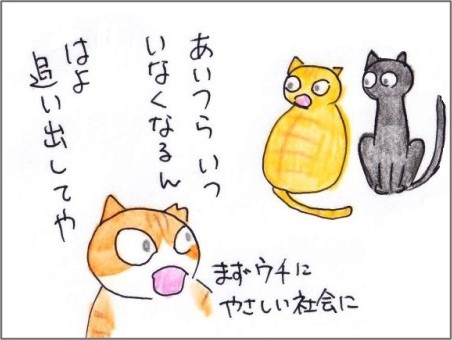 あいつら いつ
いなくなるん
はよ
追い出してや
まずウチに
やさしい社会に